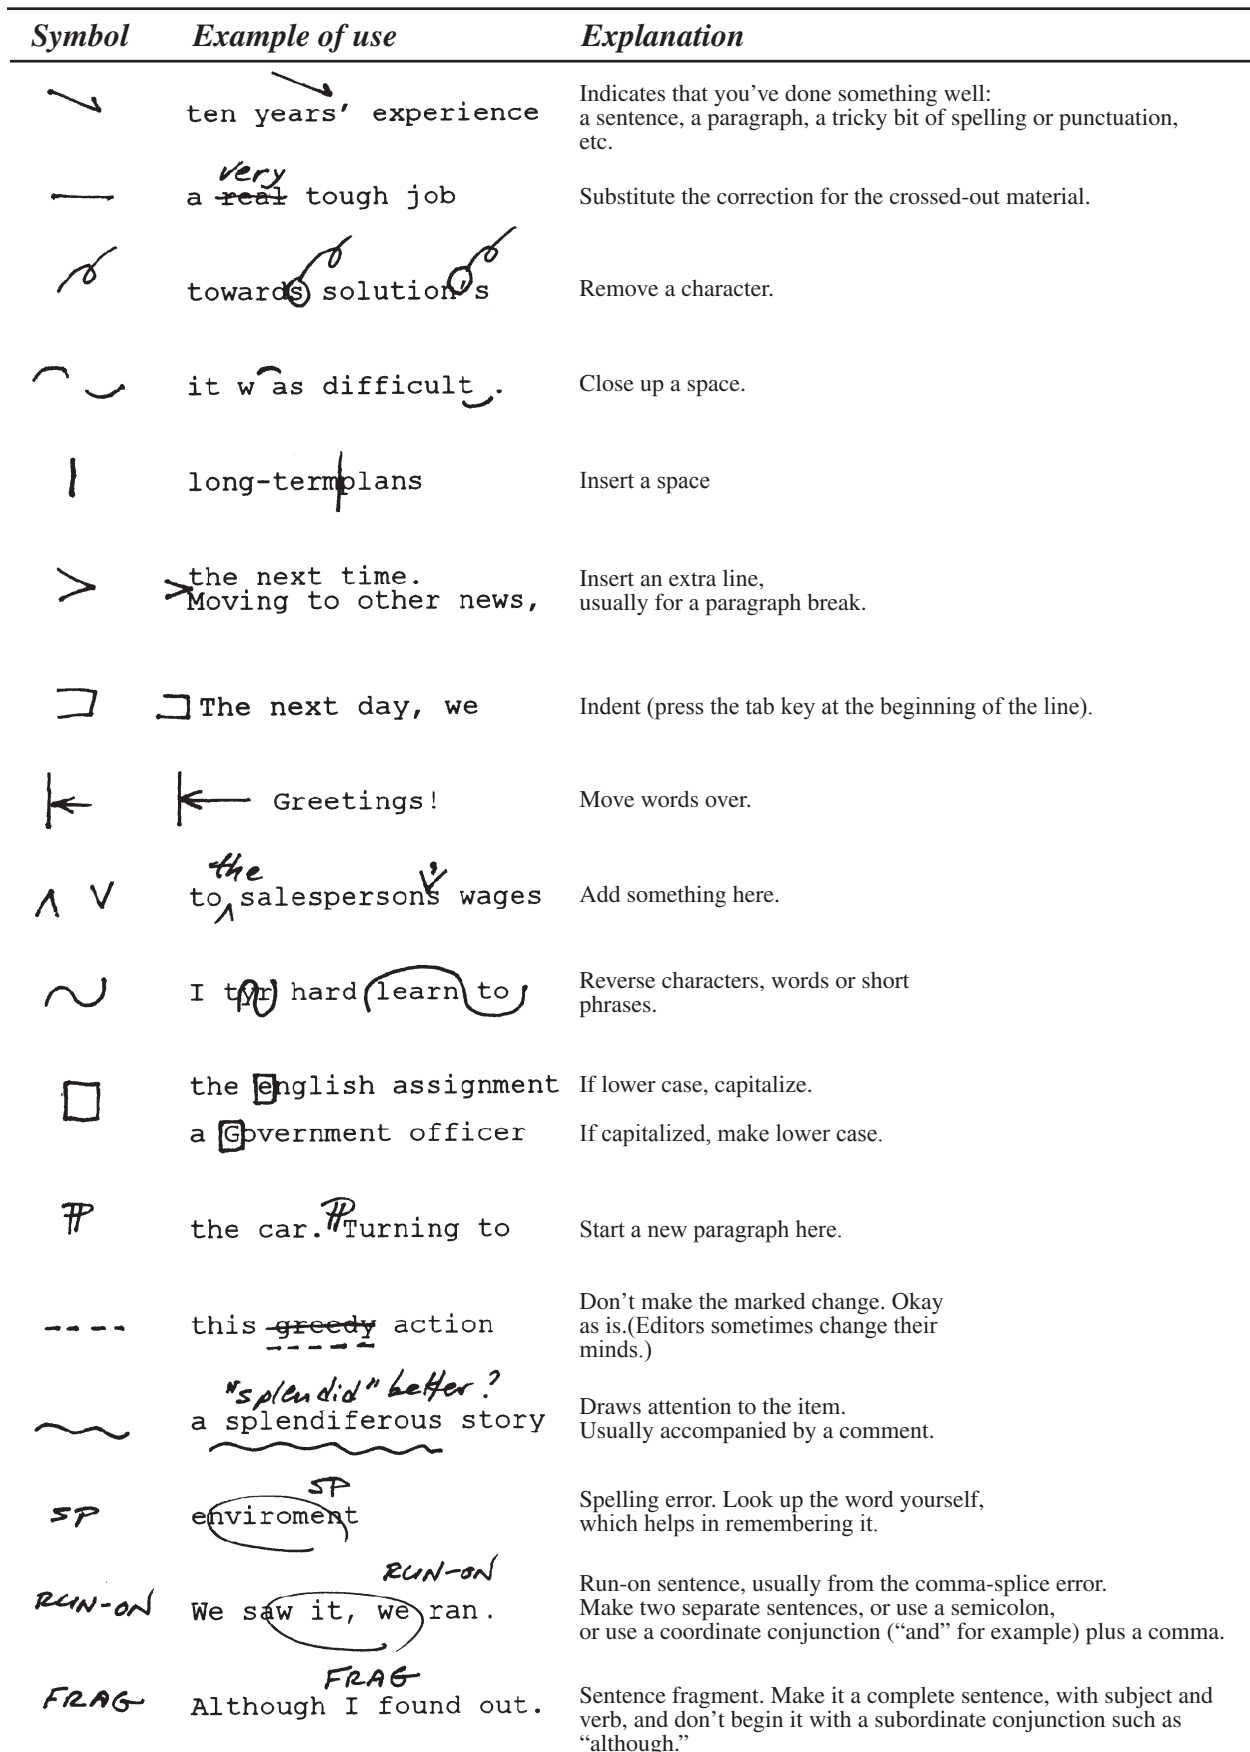 Symbol Example of use Explanation
ten years' experience
Indicates that you've done something well:
a sentence, a paragraph, a tricky bit of spelling or punctuation,
etc.
very
a real tough job
Substitute the correction for the crossed-out material.
towards solution's
Remove a character.
it w as difficult .
Close up a space.
long-termplans
Insert a space
the next time.
Moving to other news,
Insert an extra line,
usually for a paragraph break.
The next day, we
Indent (press the tab key at the beginning of the line).
Greetings!
Move words over.
the '
to salespersons wages
Add something here.
I tyr hard learn to
Reverse characters, words or short
phrases.
the english assignment
If lower case, capitalize.
a Government officer
If capitalized, make lower case.
the car. Turning to
Start a new paragraph here.
this greedy action
Don't make the marked change. Okay
as is.(Editors sometimes change their
minds.)
"splendid" better?
a splendiferous story
Draws attention to the item.
Usually accompanied by a comment.
SP
SP
enviroment
Spelling error. Look up the word yourself,
which helps in remembering it.
RUN-ON
RUN-ON
We saw it, we ran.
Run-on sentence, usually from the comma-splice error.
Make two separate sentences, or use a semicolon,
or use a coordinate conjunction (“and” for example) plus a comma.
FRAG
FRAG
Although I found out.
Sentence fragment. Make it a complete sentence, with subject and
verb, and don't begin it with a subordinate conjunction such as
“although.”